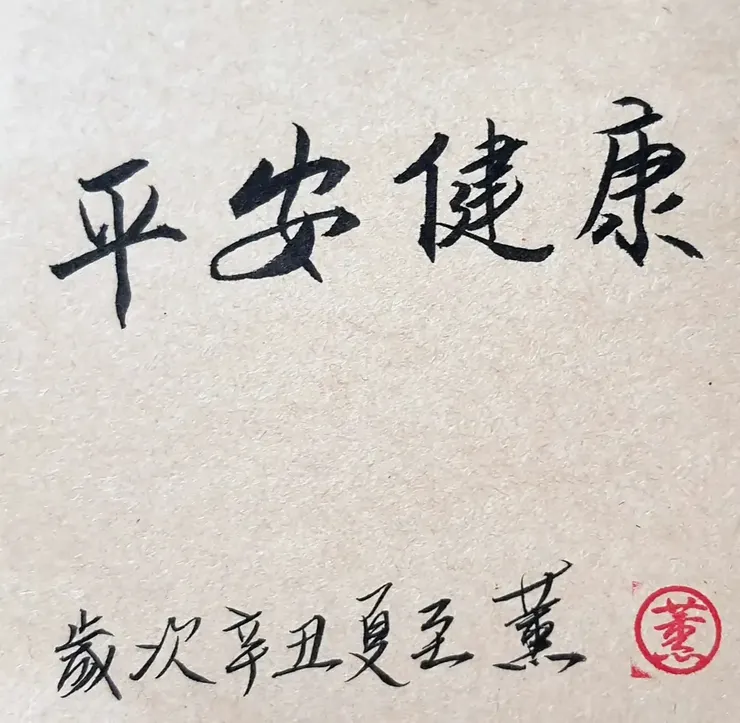 平安健康
歲次辛丑夏至薰
薰